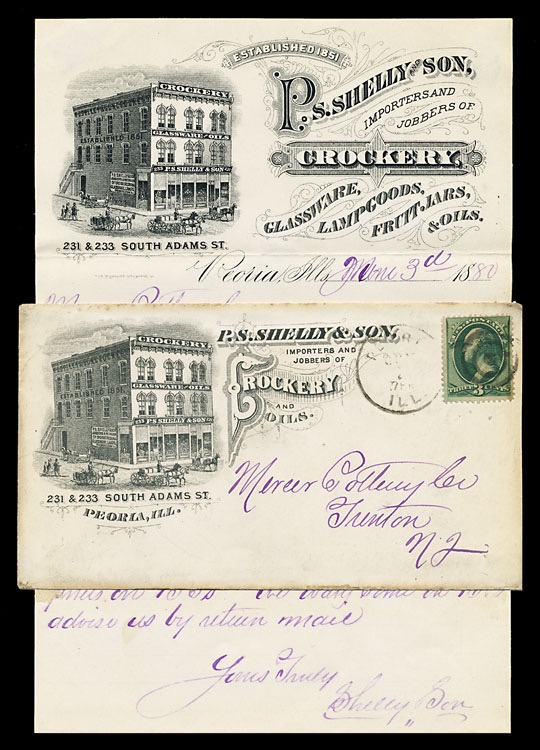 ESTABLISHED 1851
P.S. SHELLY AND SON,
IMPORTERS AND
JOBBERS OF
CROCKERY,
GLASSWARE,
LAMP GOODS,
FRUIT JARS,
& OILS.
CROCKERY.
ESTABLISHED 1851.
GLASSWARE AND OILS
233 P.S. SHELLY & SON
231 & 233 SOUTH ADAMS ST.
Peoria, Ills, 3d 1880
P.S. SHELLY & SON,
IMPORTERS AND
JOBBERS OF
CROCKERY
AND
OILS.
CROCKERY.
GLASSWARE AND OILS
ESTABLISHED 1851.
233 P.S. SHELLY & SON
231 & 233 SOUTH ADAMS ST.
PEORIA, ILL.
ILL.
THREE CENTS
3
Mercer Pottery Co
Trenton
N.J.
advise us by return mail
Yours Truly
Shelly & Son